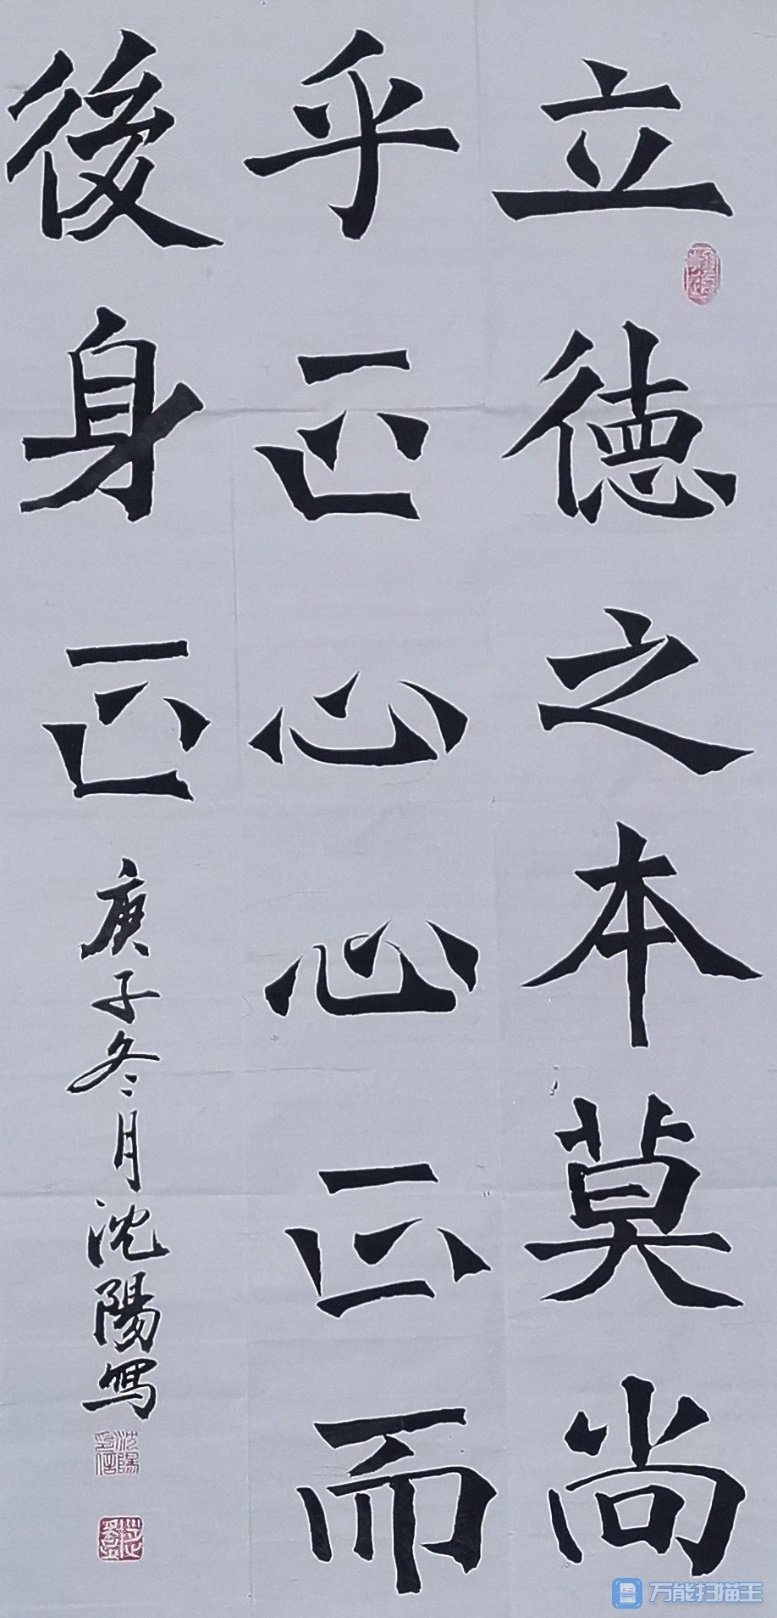 立德之本莫尚
乎正心心正而
後身正
庚子冬月沈陽寫
沈陽印信
万能扫描王